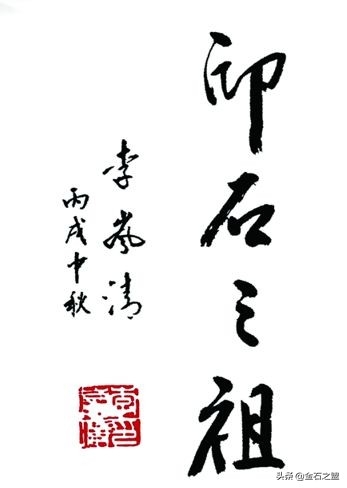 印石之祖
李岚清
丙戌中秋
头条@金石之盟